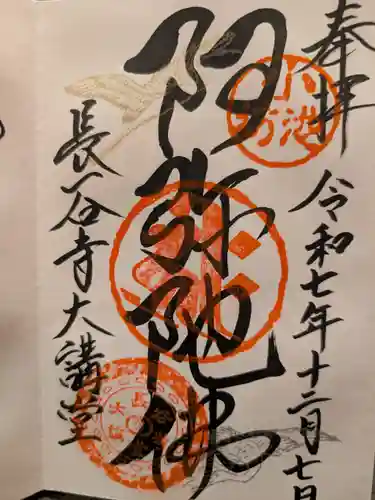 奉拝
令和七年十二月七日
阿弥陀佛
長谷寺大講堂